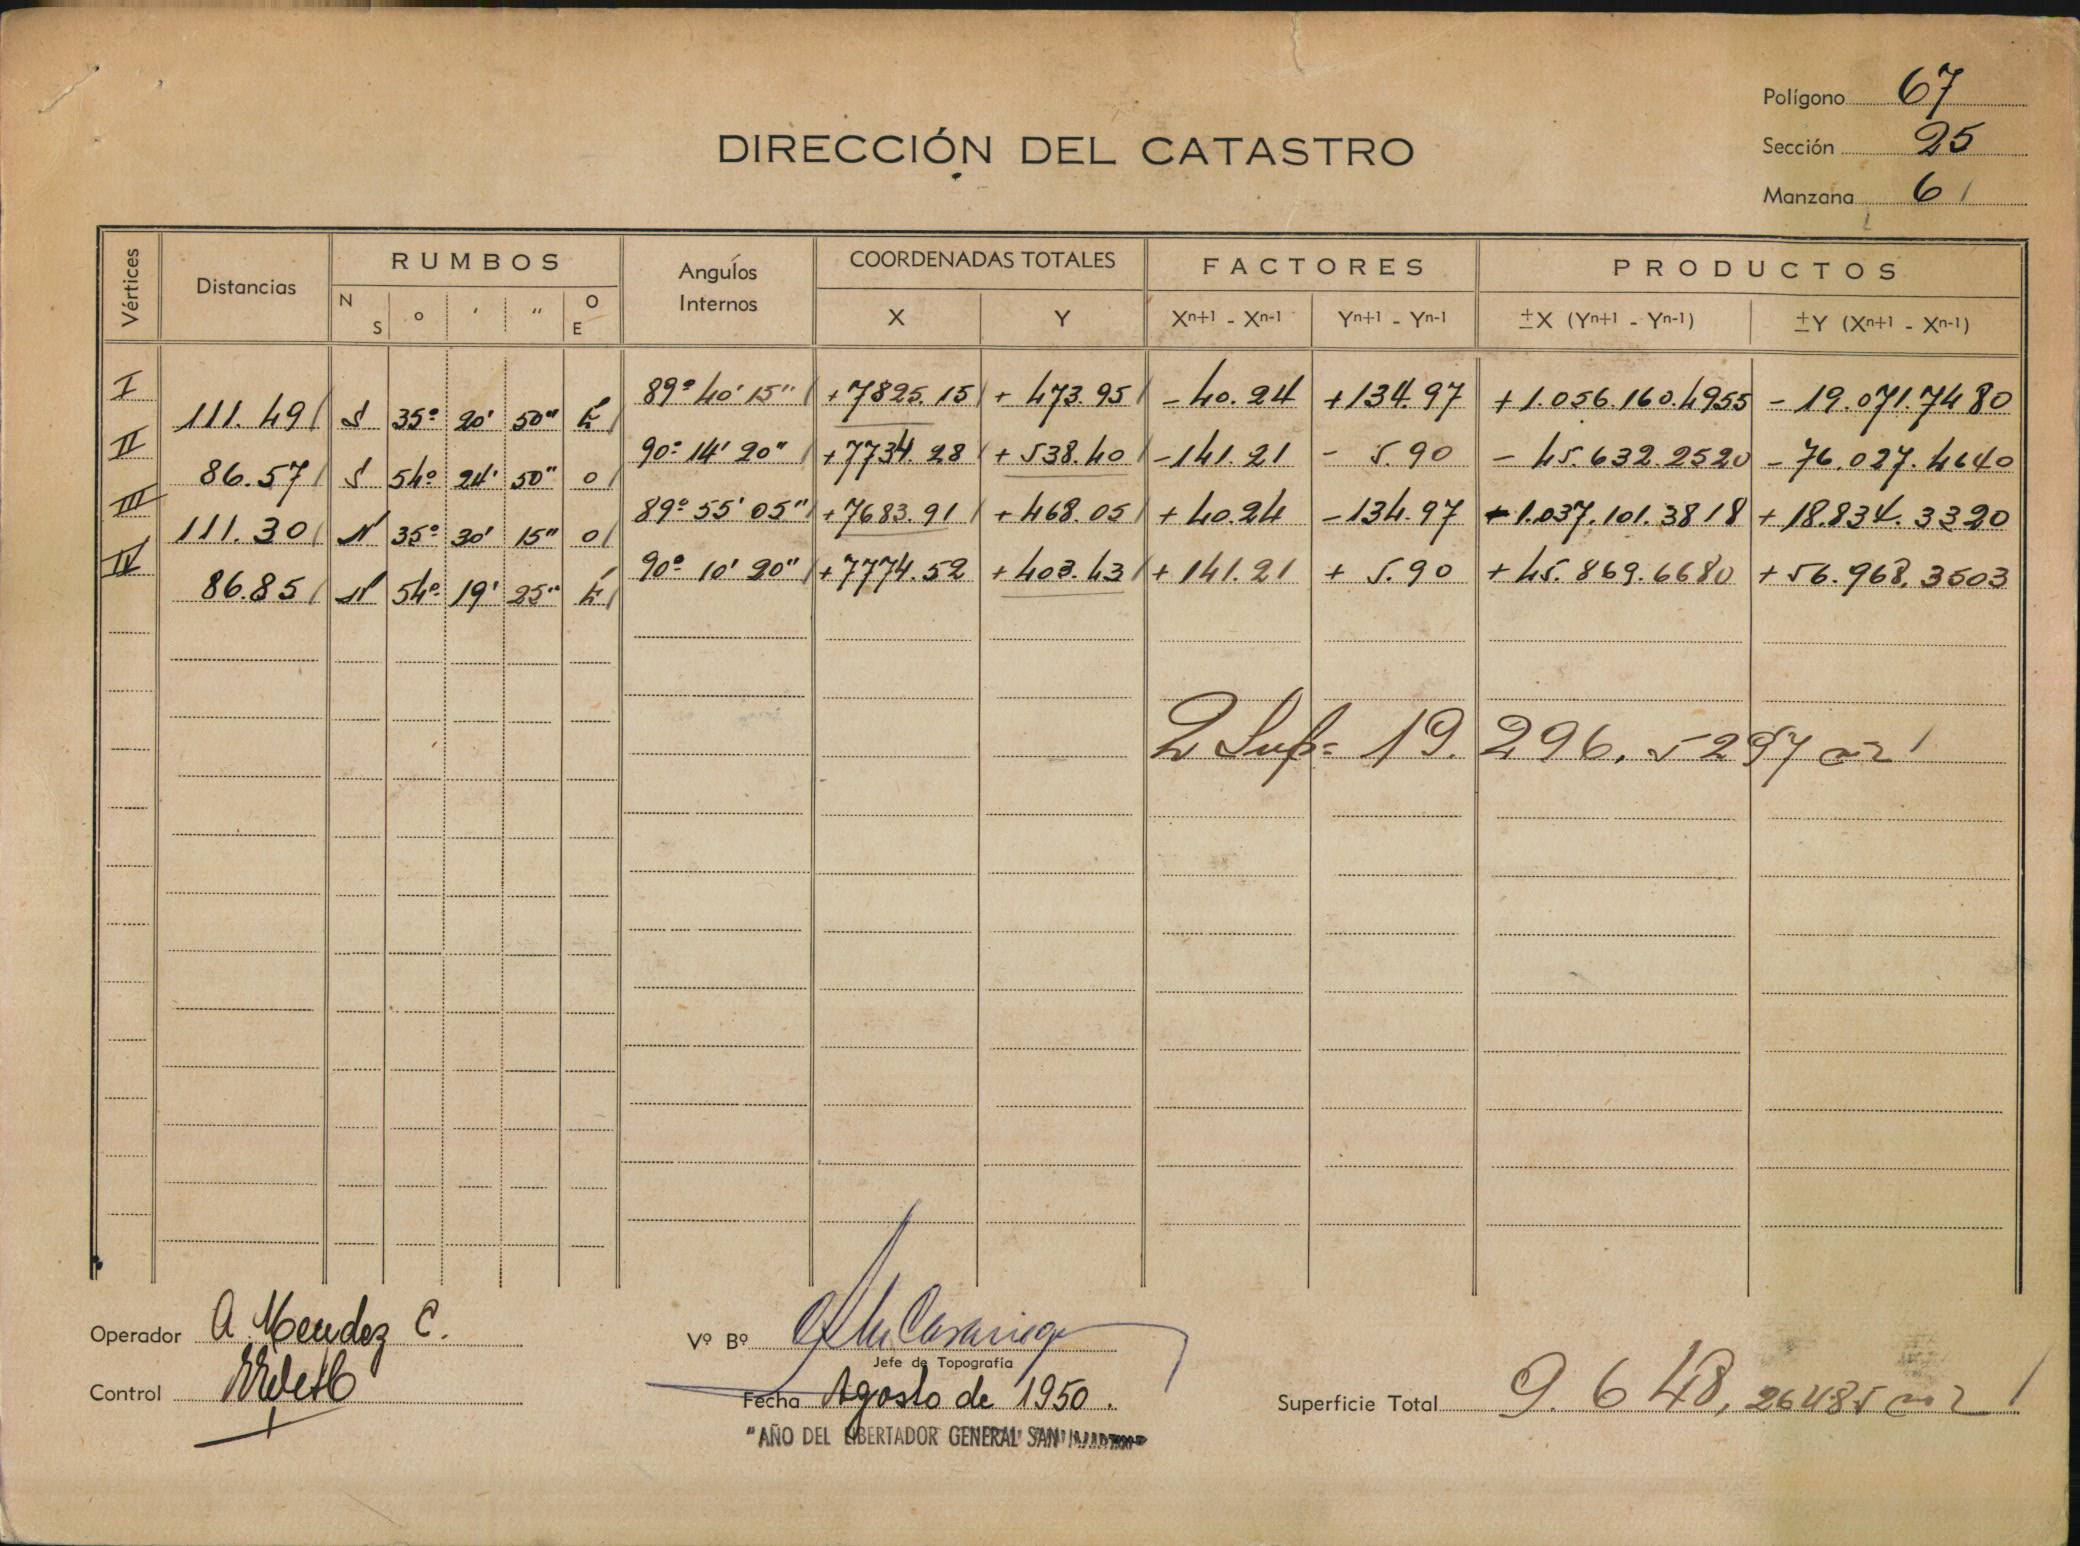 Polígono 67
DIRECCIÓN DEL CATASTRO
Sección 25
Manzana 6
Vértices Distancias RUMBOS Angulos Internos COORDENADAS TOTALES FACTORES PRODUCTOS
N S o ' " O E X Y Xn+1 - Xn-1 Yn+1 - Yn-1 ±X (Yn+1 - Yn-1) ±Y (Xn+1 - Xn-1)
I 89º 40' 15" +7825.15 + 473.95 - 40.24 +134.97 +1.056.160.4955 - 19.071.7480
111.49 S 35º 20' 50" E
II 90º 14' 20" +7734.28 + 538.40 -141.21 - 5.90 - 45.632.2520 - 76.027.4640
86.57 S 54º 24' 50" O
III 89º 55' 05" +7683.91 + 468.05 + 40.24 -134.97 -1.037.101.3818 + 18.834.3320
111.30 N 35º 30' 15" O
IV 90º 10' 20" +7774.52 + 403.43 + 141.21 + 5.90 + 45.869.6680 + 56.968.3503
86.85 N 54º 19' 25" E
2 Sup= 19.296,5297 m2
Operador A. Mendez C.
Vº Bº
Jefe de Topografía
Control
Fecha Agosto de 1950.
Superficie Total 9.648,26485 m2
"AÑO DEL LIBERTADOR GENERAL SAN